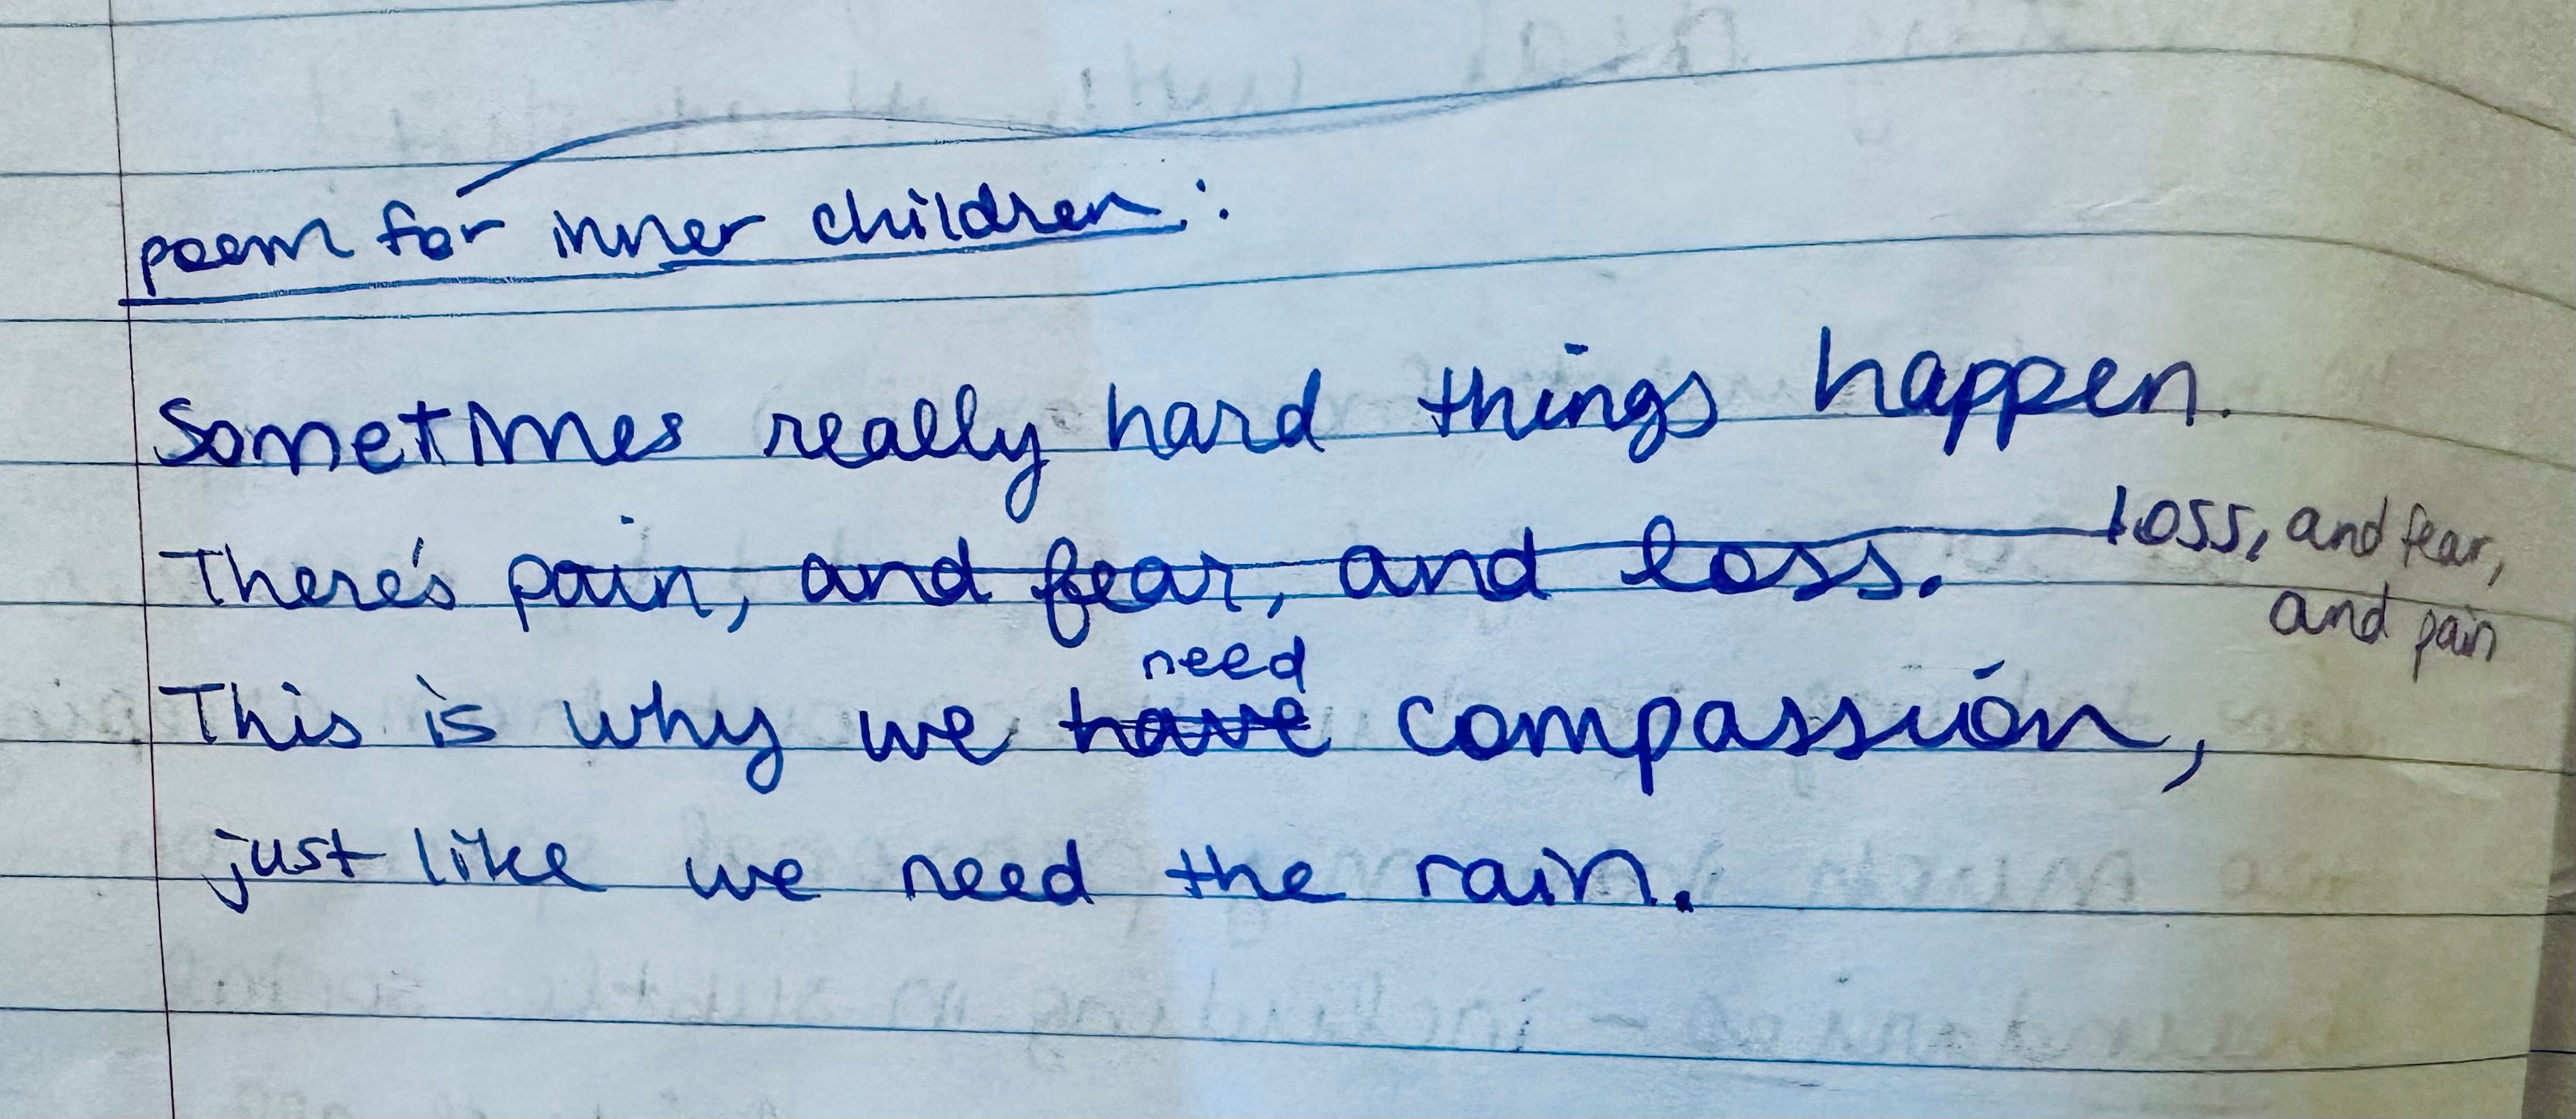 poem for inner children:
Sometimes really hard things happen.
There's pain, and fear, and loss. loss, and fear,
and pain
need
This is why we have compassion,
just like we need the rain.